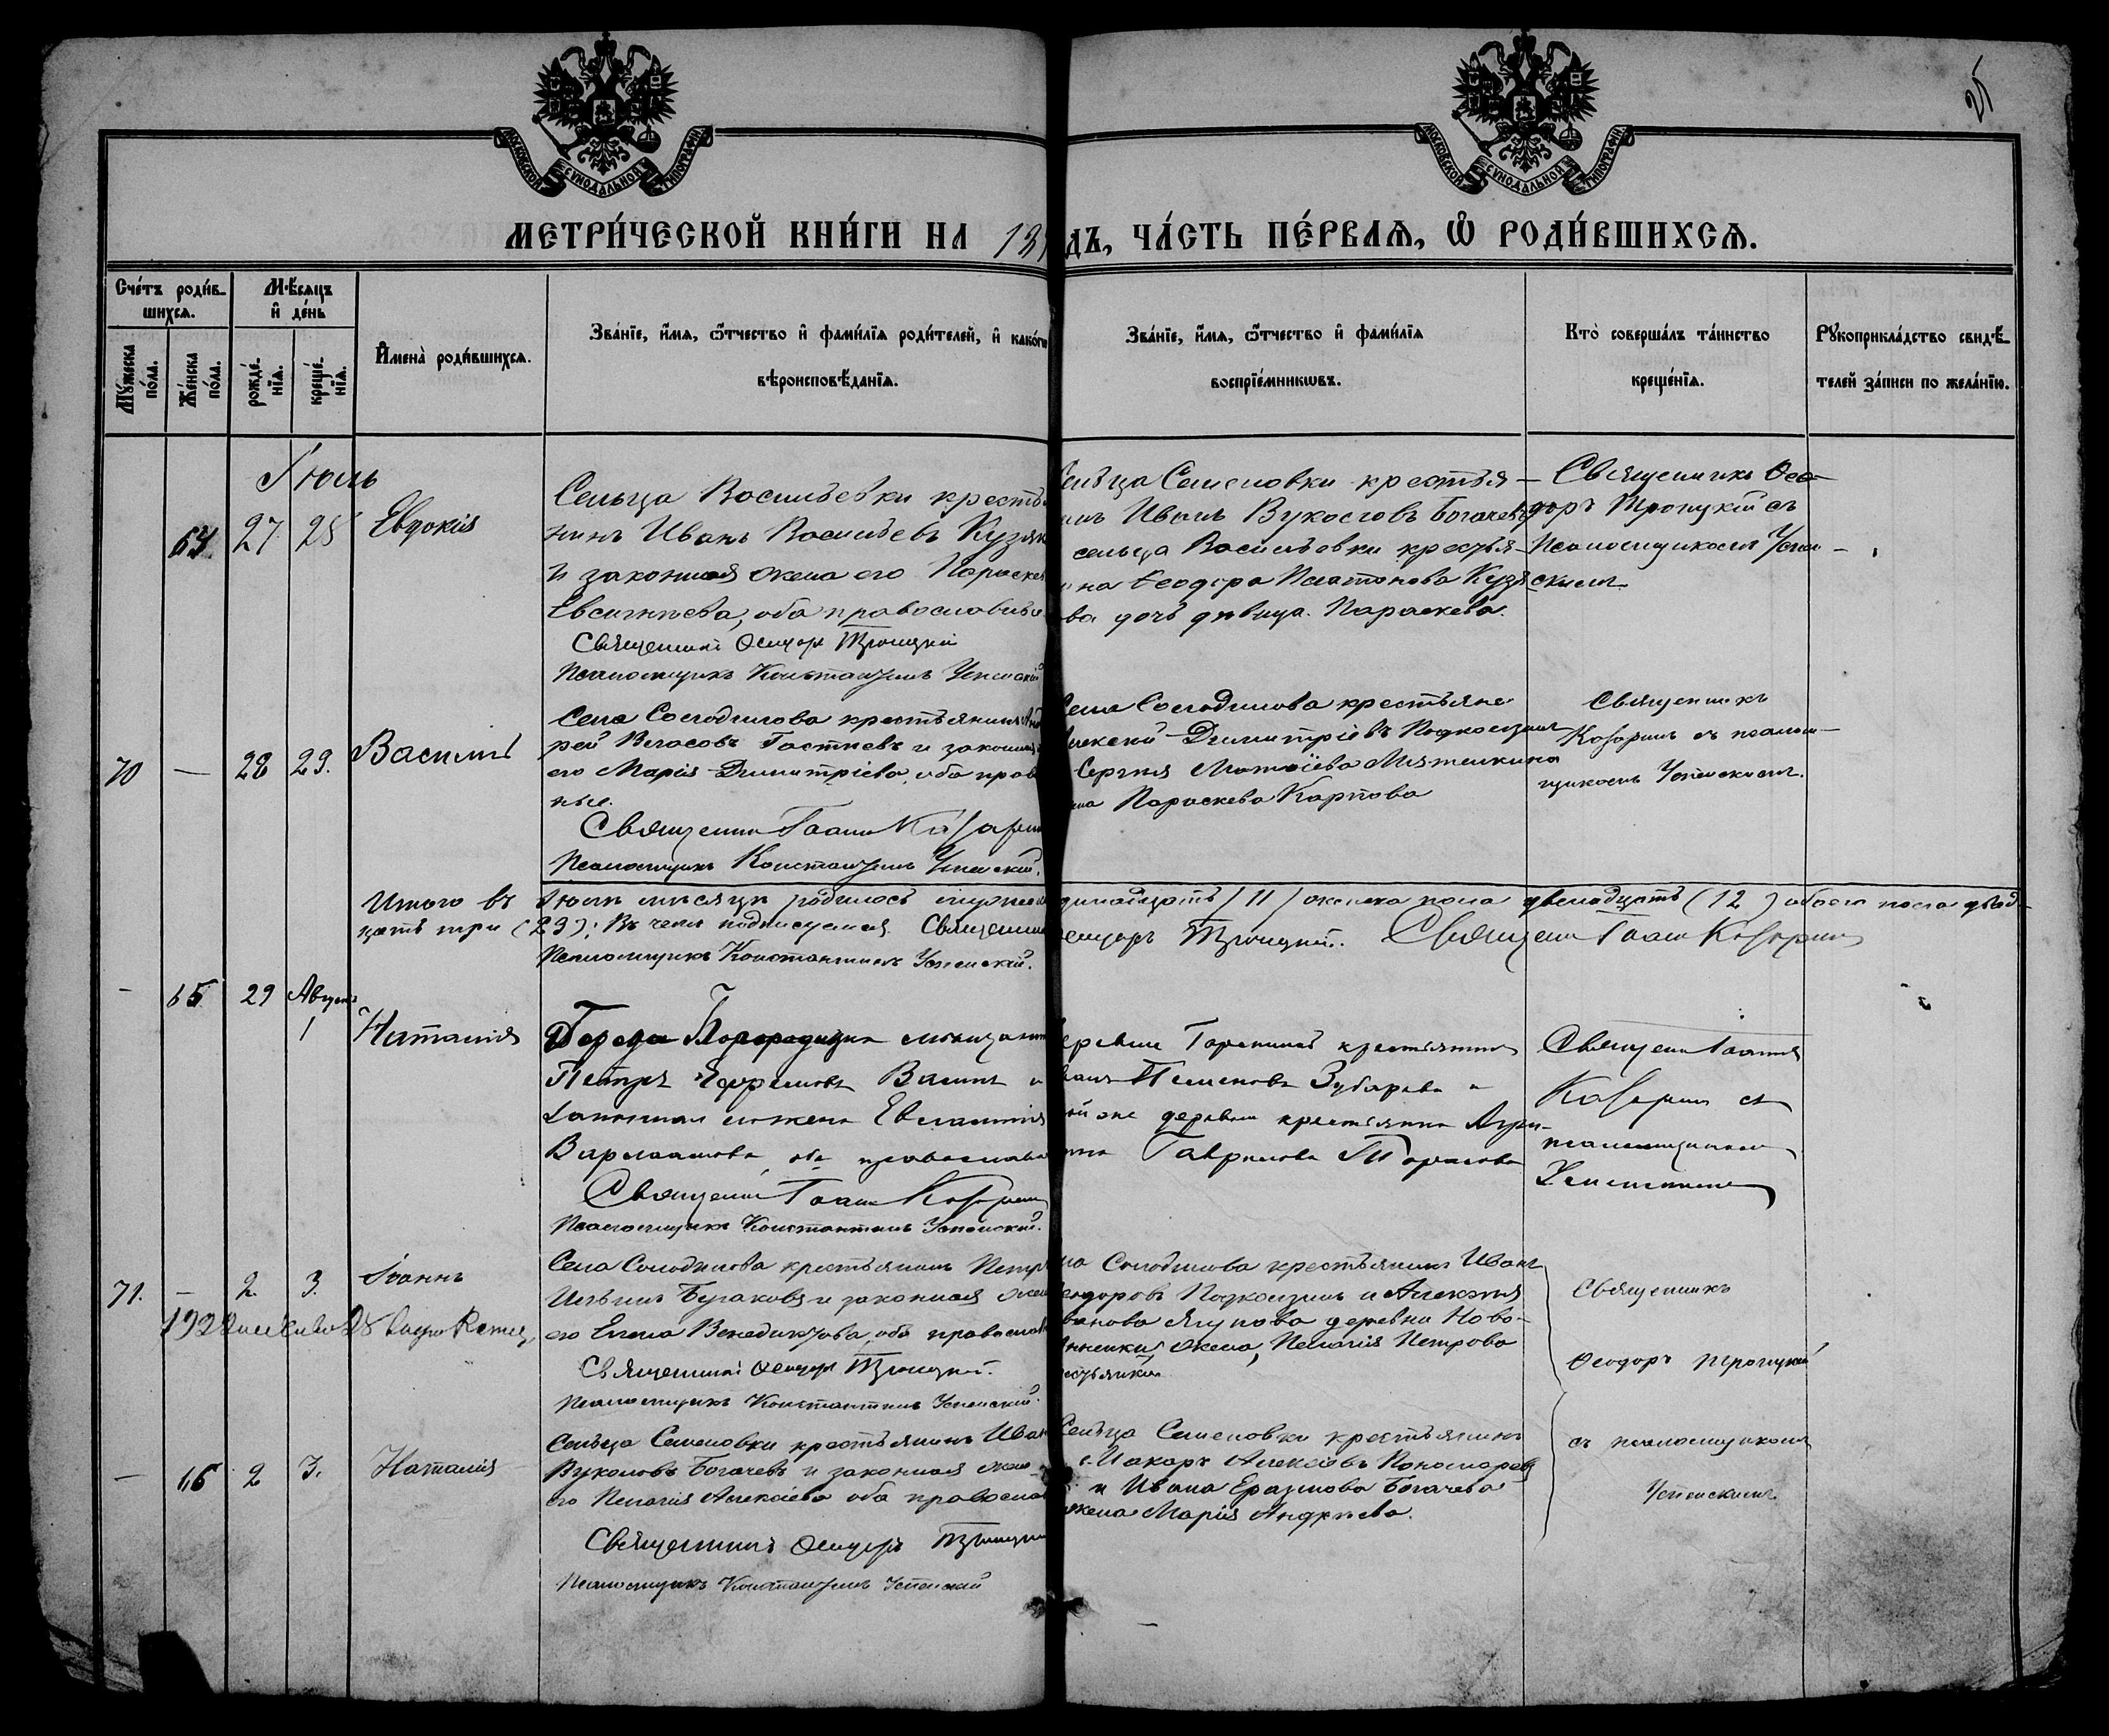 25
МОСКОВСКОЙ СѴНОДАЛЬНОЙ ТИПОГРАФІИ
МОСКОВСКОЙ СѴНОДАЛЬНОЙ ТИПОГРАФІИ
МЕТРИ́ЧЕСКОЙ КНИ́ГИ НА 18
ДЪ, ЧА́СТЬ ПЕ́РВАѦ, Ѡ҆ РОДИ́ВШИХСѦ.
Сче́тъ роди́в-
шихсѧ.
Мꙋ́жеска по́ла.
Же́нска по́ла.
Мѣ́сѧцъ
и҆ де́нь
рожде́-
нїѧ.
креще́-
нїѧ.
И҆мена̀ роди́вшихсѧ.
Зва́нїе, и҆́мѧ, ѻ҆́тчество и҆ фами́лїѧ роди́телей, и҆ како́гѡ
вѣроисповѣ́данїѧ.
Зва́нїе, и҆́мѧ, ѻ҆́тчество и҆ фами́лїѧ
воспрїе́мникѡвъ.
Кто̀ соверша́лъ та́инство
креще́нїѧ.
Рꙋкоприкла́дство свидѣ́-
телей за́писи по жела́нїю.
Іюль
64 27 28 Евдокія
Сельца Васильевки кресть
нинъ Иванъ Васильевъ Кузяк
и законная жена его Параскев
Евсигнѣева, оба православн
Священникъ Ѳеодоръ Троицкій
Псаломщикъ Константинъ Успенскій
Сельца Семеновки крестья-
нинъ Иванъ Вуколовъ Богачевъ
сельца Васильевки крестья-
нина Ѳеодора Платонова Кузя
ва дочь дѣвица Параскева.
Священникъ Ѳео-
доръ Троицкій съ
Псаломщикомъ Успен-
скимъ
70 — 28 29. Василій
Села Солодилова крестьянинъ Анд
рей Власовъ Гостѣевъ и законная
его Марія Димитріева, оба прав
ные.
Священникъ Іоаннъ
Псаломщикъ Константинъ Успенскій.
Села Солодилова крестьяне
Алексѣй Димитріевъ Подколзинъ
Сергѣя Матѳіева Мятенкина
жена Параскева Карпова
Священникъ
съ псалом-
щикомъ Успенскимъ.
Итого въ Іюлѣ мѣсяцѣ родилось мужеска
одинадцать (11) женска пола двенадцать (12) обоего пола двад-
цать три (23); Въ чемъ подписуемся. Священникъ
Ѳеодоръ Троицкій. Священникъ Іоаннъ
Псаломщикъ Константинъ Успенскій.
— 65 29 Августъ
1 Наталія
Города Богородицка мѣщанин
Петръ Ефремовъ Васинъ и
законная его жена Евлампія
Варлаамова, оба православн
Священникъ Іоаннъ
Псаломщикъ Константинъ Успенскій.
крестьянинъ
Зубаревъ и
той же деревни крестьянка Агри-
пина Гаврилова Тарасова
Священникъ Іоаннъ
съ
псаломщикомъ
Успенскимъ
71. — 2. 3. Іоаннъ
Села Солодилова крестьянинъ Петръ
Ильинъ Бугаковъ и законная жена
его Елена Венедиктова, оба православн
Священникъ Ѳеодоръ Троицкій.
Псаломщикъ Константинъ Успенскій.
Солодилова крестьянинъ Иванъ
Ѳеодоровъ Подколзинъ и Алексѣя
Иванова Ягупова деревни Ново-
жена, Пелагія Петрова
Священникъ
Ѳеодоръ Троицкій
— 66 2 3. Наталія
Сельца Семеновки крестьянинъ Иван
Вуколовъ Богачевъ и законная жена
его Пелагія Алексіева оба правосла
Священникъ Ѳеодоръ Троицкій
Псаломщикъ Константинъ Успенскій
Сельца Семеновки крестьянинъ
Макаръ Алексіевъ Пономаревъ
и Ивана Еразмова Богачева
жена Марія Андреева.
съ псаломщикомъ
Успенскимъ